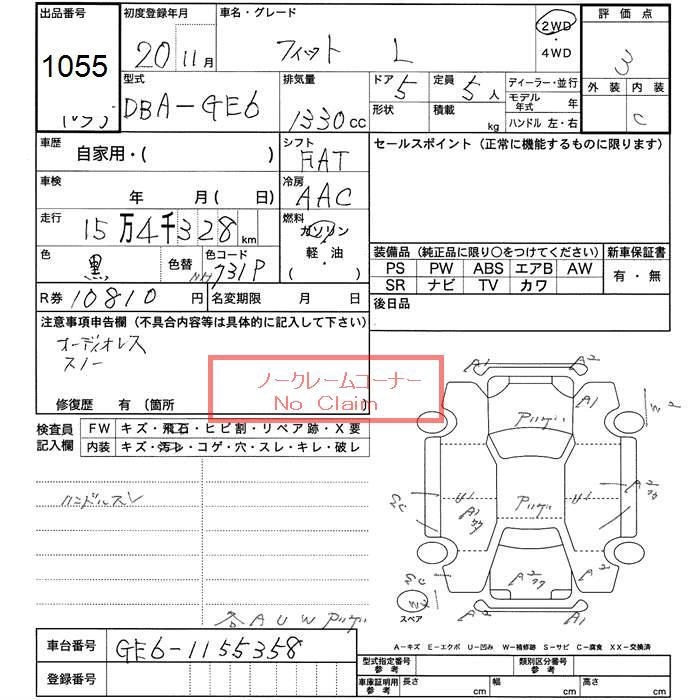 出品番号 初度登録年月 車名・グレード 評価点
1055 20 11月 フィット L 2WD・4WD 3
外装 内装
C
型式 排気量 ドア 定員 ディーラー・並行
DBA-GE6 1330cc 5 5人 モデル年式 年
形状 積載 kg ハンドル 左・右
車歴 シフト セールスポイント（正常に機能するものに限ります）
自家用・（ ） FAT
車検 年 月（ 日） 冷房 AAC
走行 15万4千328km 燃料 ガソリン 軽油 （ ）
装備品（純正品に限り○をつけてください） 新車保証書
PS PW ABS エアB AW 有・無
SR ナビ TV カワ
色 黒 色替 色コード NH731P
R券 10810円 名変期限 月 日 後日品
注意事項申告欄（不具合内容等は具体的に記入して下さい）
オーディオレス
スノー
ノークレームコーナー
No Claim
修復歴 有（箇所
検査員記入欄 FW キズ・飛石・ヒビ割・リペア跡・X要
内装 キズ・汚レ・コゲ・穴・スレ・キレ・破レ
ハンドルスレ
A1 A2
A1
U1 A1 U1 A2
A2
スペア A2 A1
各AUW
A－キズ E－エクボ U－凹み W－補修跡 S－サビ C－腐食 XX－交換済
車台番号 GE6-1155358
登録番号
型式指定番号参考 類別区分番号参考
車庫証明用参考 長さ cm 幅 cm 高さ cm